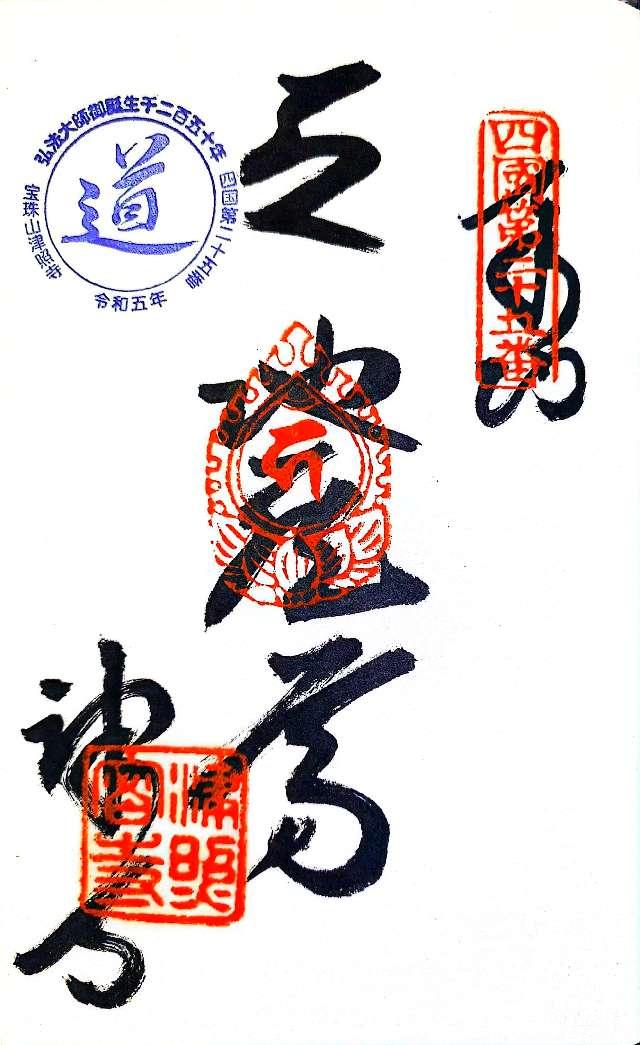 四國第二十五番
奉納
地蔵
津寺
弘法大師御誕生千二百五十年
四国第二十五番
宝珠山津照寺
令和五年
道
津照